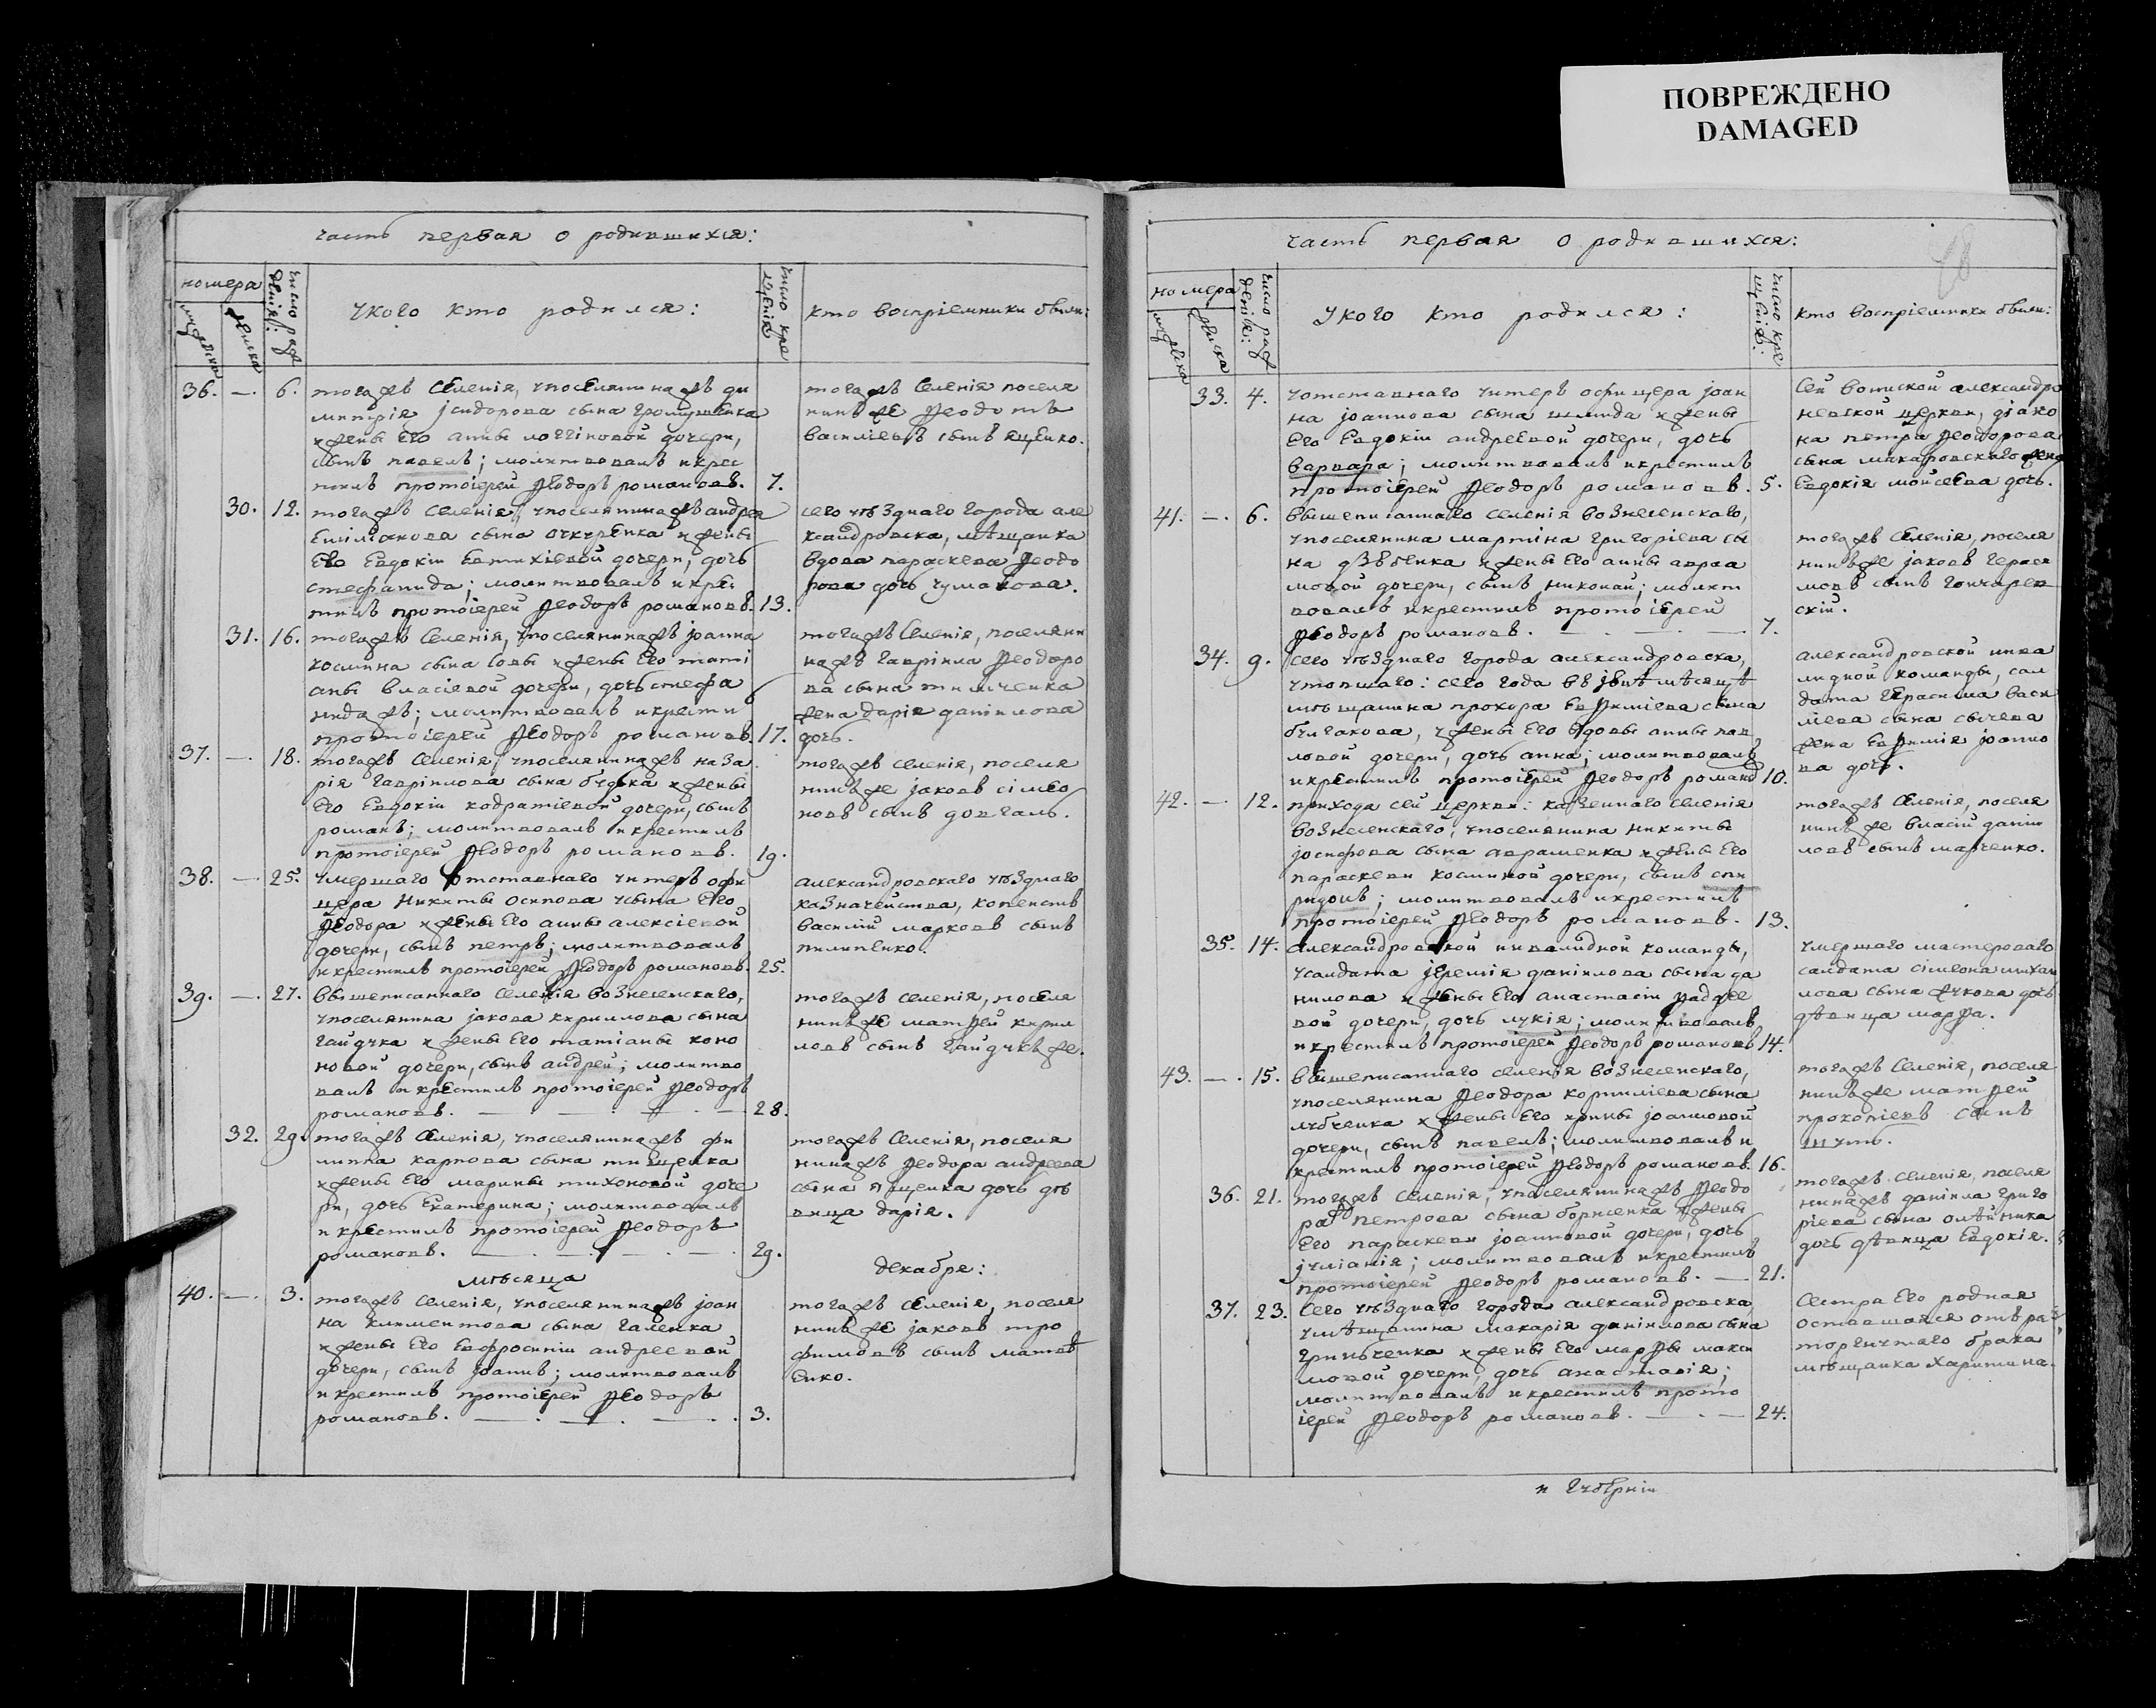 ПОВРЕЖДЕНО
DAMAGED
часть первая о родившихся:
номера
мужеска
женска
число рож
денія:
Укого кто родился:
число кре
щенія
кто воспріемники были:
36. —. 6. тогажъ селенія, упоселянинажъ ди
митрія Ісидорова сына
ижены его анны логгіновой дочери,
сынъ павелъ; молитвовалъ икрес
тилъ протоіерей Ѳеодоръ романовъ. 7.
тогажъ селенія поселя
нинъже Ѳеодотъ
василіевъ сынъ ященко.
30. 12. тогажъ селенія, упоселянинажъ андрея
емиліанова сына очкуренка ижены
его Евдокіи Евтихіевой дочери, дочь
стефанида; молитвовалъ икрес
тилъ протоіерей Ѳеодоръ романовъ. 13.
сего уѣзднаго города але
ксандровска, мѣщанка
вдова параскева Ѳеодо
рова дочь чумакова.
31. 16. тогажъ селенія, упоселянинажъ іоанна
космина сына совы ижены его таті
аны власіевой дочери, дочь стефа
нидажъ; молитвовалъ икрести
протоіерей Ѳеодоръ романовъ. 17.
тогажъ селенія, поселяни
нажъ гавріила Ѳеодоро
ва сына тимченка
жена дарія даніилова
дочь.
37. —. 18. тогажъ селенія, упоселянинажъ наза
рія гавріилова сына будька ижены
его Евдокіи кодратіевой дочери, сынъ
романъ; молитвовалъ икрестилъ
протоіерей Ѳеодоръ романовъ. 19.
тогажъ селенія, поселя
нинъже іаковъ сімео
новъ сынъ довгаль.
38. —. 25. умершаго отставнаго унтеръ офи
цера никиты осипова усына его
Ѳеодора ижены его анны алексіевой
дочери, сынъ петръ; молитвовалъ
икрестилъ протоіерей Ѳеодоръ романовъ. 25.
александровскаго уѣзднаго
казначейства, копеистъ
василій марковъ сынъ
пилипенко.
39. —. 27. вышеписаннаго селенія вознесенскаго,
упоселянина іакова кириллова сына
гайдука ижены его татіаны коно
новой дочери, сынъ андрей; молитво
валъ икрестилъ протоіерей Ѳеодоръ
романовъ. —. —. —. — 28.
тогажъ селенія, поселя
нинъже матѳей кирил
ловъ сынъ гайдукъже.
32. 29. тогажъ селенія, упоселянинажъ фи
липпа карпова сына тищенка
ижены его марины тихоновой доче
ри, дочь Екатерина; молитвовалъ
икрестилъ протоіерей Ѳеодоръ
романовъ. —. —. —. —. 29.
тогажъ селенія, поселя
нинажъ Ѳеодора андреева
сына ященка дочь дѣ
вица дарія.
мѣсяца декабря:
40. —. 3. тогажъ селенія, упоселянинажъ іоан
на климентова сына галенка
ижены его Евфросиніи андреевой
дочери, сынъ іоаннъ; молитвовалъ
икрестилъ протоіерей Ѳеодоръ
романовъ. —. —. —. 3.
тогажъ селенія, поселя
нинъже іаковъ тро
фимовъ сынъ матв
Енко.
часть первая о родившихся:
номера
мужеска
женска
число рож
денія:
Укого кто родился:
число кре
щенія:
кто воспріемники были:
33. 4. уотставнаго унтеръ офицера іоан
на іоаннова сына шмида ижены
его Евдокіи андреевой дочери, дочь
варвара; молитвовалъ икрестилъ
протоіерей Ѳеодоръ романовъ. 5.
сей воинской александро
невской церкви, діако
на петра Ѳеодорова
сына макаровскаго жена
Евдокія моисеева дочь.
41. —. 6. вышеписаннаго селенія вознесенскаго,
упоселянина мартина григоріева сы
на дзѣбенка ижены его анны авраа
мовой дочери, сынъ николай; молит
вовалъ икрестилъ протоіерей
Ѳеодоръ романовъ. —. —. —. 7.
тогажъ селенія, поселя
нинъже іаковъ гераси
мовъ сынъ гончарев
скій.
34. 9. сего уѣзднаго города александровска,
утопшаго: сего года въ іюнѣ мѣсяцѣ
мѣщанина прохора Евѳиміева сына
булгакова, ужены его вдовы анны пав
ловой дочери, дочь анна; молитвовалъ
икрестилъ протоіерей Ѳеодоръ романо 10.
александровской инва
лидной команды, сол
дата герасима васи
ліева сына сычева
жена Евѳимія іоанно
ва дочь.
42. —. 12. прихода сей церкви: казеннаго селенія
вознесенскаго, упоселянина никиты
іосифова сына авраменка ижены его
параскеви косминой дочери, сынъ спи
ридонъ; молитвовалъ икрестилъ
протоіерей Ѳеодоръ романовъ. 13.
тогажъ селенія, поселя
нинъже власій даніи
ловъ сынъ марченко.
35. 14. александровской инвалидной команды,
усолдата іеремія даніилова сына да
нилова ижены его анастасіи Ѳадѳее
вой дочери, дочь лукія; молитвовалъ
икрестилъ протоіерей Ѳеодоръ романовъ 14.
умершаго мастероваго
солдата сімеона михаи
лова сына жукова дочь
дѣвица марѳа.
43. —. 15. вышеписаннаго селенія вознесенскаго,
упоселянина Ѳеодора корниліева сына
лубченка ижены его ирины іоанновой
дочери, сынъ павелъ; молитвовалъ и
крестилъ протоіерей Ѳеодоръ романовъ. 16.
тогажъ селенія, поселя
нинъже матѳей
прокопіевъ сынъ
шутъ.
36. 21. тогажъ селенія, упоселянинажъ Ѳеодо
ра петрова сына борисенка ижены
его параскеви іоанновой дочери, дочь
іуліанія; молитвовалъ икрестилъ
протоіерей Ѳеодоръ романовъ. — 21.
тогажъ селенія, поселя
нинажъ даніила григо
ріева сына олѣйника
дочь дѣвица Евдокія.
37. 23. сего уѣзднаго города александровска,
умѣщанина макарія даніилова сына
гриньченка ижены его марѳы макси
мовой дочери, дочь анастасія;
молитвовалъ икрестилъ прото
іерей Ѳеодоръ романовъ. —. — 24.
сестра его родная
оставшаяся отъ ра
торгнутаго брака
мѣщанка харитина.